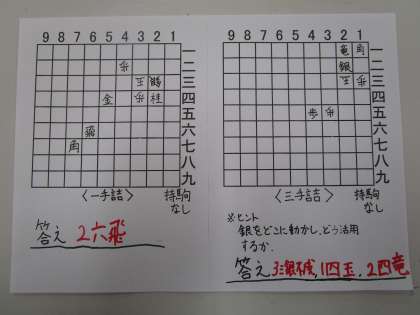 9 8 7 6 5 4 3 2 1
一
歩 二
王 三
金 歩 桂 四
五
飛 六
角 七
八
九
〈一手詰〉 持駒
なし
答え 2六飛
9 8 7 6 5 4 3 2 1
竜 角 一
銀 二
王 歩 三
四
歩 歩 五
六
七
八
九
〈三手詰〉 持駒
なし
※ヒント
銀をどこに動かし、どう活用
するか.
答え 3三銀不成, 1四玉, 2四竜